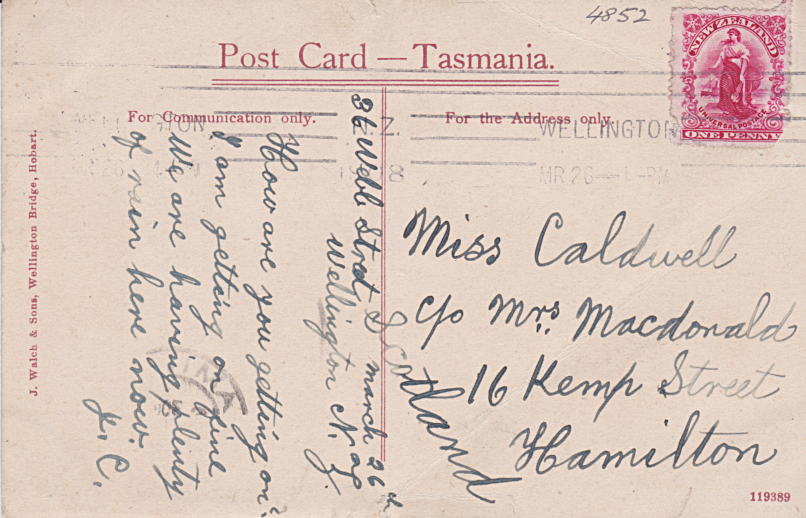 4852
Post Card — Tasmania.
NEW ZEALAND
UNIVERSAL POSTAGE
ONE PENNY
For Communication only.
For the Address only.
WELLINGTON
N.Z.
WELLINGTON
MR 26 — PM
J. Walch & Sons, Wellington Bridge, Hobart.
Webb Street
Wellington N.Z.
March 26th
How are you getting on.
I am getting on fine
We are having plenty
of rain here now.
J. C.
Miss Caldwell
c/o Mrs. Macdonald
16 Kemp Street
Hamilton
Scotland
119389